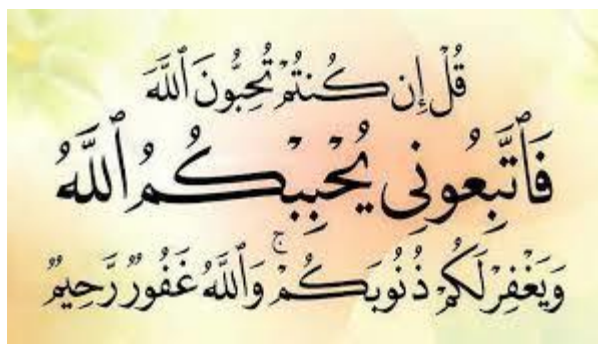 قُلْ إِن كُنتُمْ تُحِبُّونَ ٱللَّهَ
فَٱتَّبِعُونِى يُحْبِبْكُمُ ٱللَّهُ
وَيَغْفِرْ لَكُمْ ذُنُوبَكُمْ ۚ وَٱللَّهُ غَفُورٌ رَّحِيمٌ